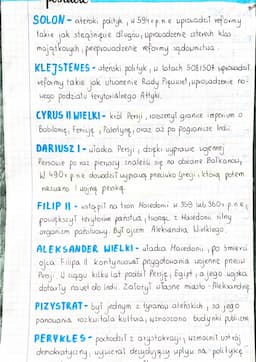 postacie
SOLON - ateński polityk, w 594r p.n.e wprowadził reformy
takie jak ściągnięcie długów, uprowadzenie czterech klas
majątkowych, przeprowadzenie reformy sądownictwa.
KLEJSTENES - ateński polityk, w latach 508/507 wprowadził
reformy takie jak utworzenie Rady Pięciuset, uprowadzenie no-
wego podziału terytorialnego Attyki.
CYRUS II WIELKI - król Persji, rozszerzył granice imperium o
Babilonię, Fenicję, Palestynę, oraz aż po pogranicze Indii.
DARIUSZ I - władca Persji, dzięki wyprawie wojennej
Persowie po raz pierwszy znaleźli się na obszarze Bałkanów,
W 490r p.n.e dowodził wyprawą przeciwko Grecji, którą potem
nazwano I wojną perską.
FILIP II - wstąpił na tron Macedonii w 359 lub 360r p.n.e,
powiększył terytorium państwa, tworząc z Macedonii silny
organizm państwowy. Był ojcem Aleksandra Wielkiego.
ALEKSANDER WIELKI - władca Macedonii, po śmierci
ojca Filipa II kontynuował przygotowania wojenne przeciw
Persji. W ciągu kilku lat podbił Persję, Egipt, a jego wojska
dotarły nawet do Indii. Założył własne miasto - Aleksandrię.
PIZYSTRAT - był jednym z tyranów ateńskich, za jego
panowania rozkwitała kultura, wznoszono budynki publiczne
PERYKLES - pochodził z arystokracji, wzmocnił ustrój
demokratyczny, wywierał decydujący wpływ na politykę